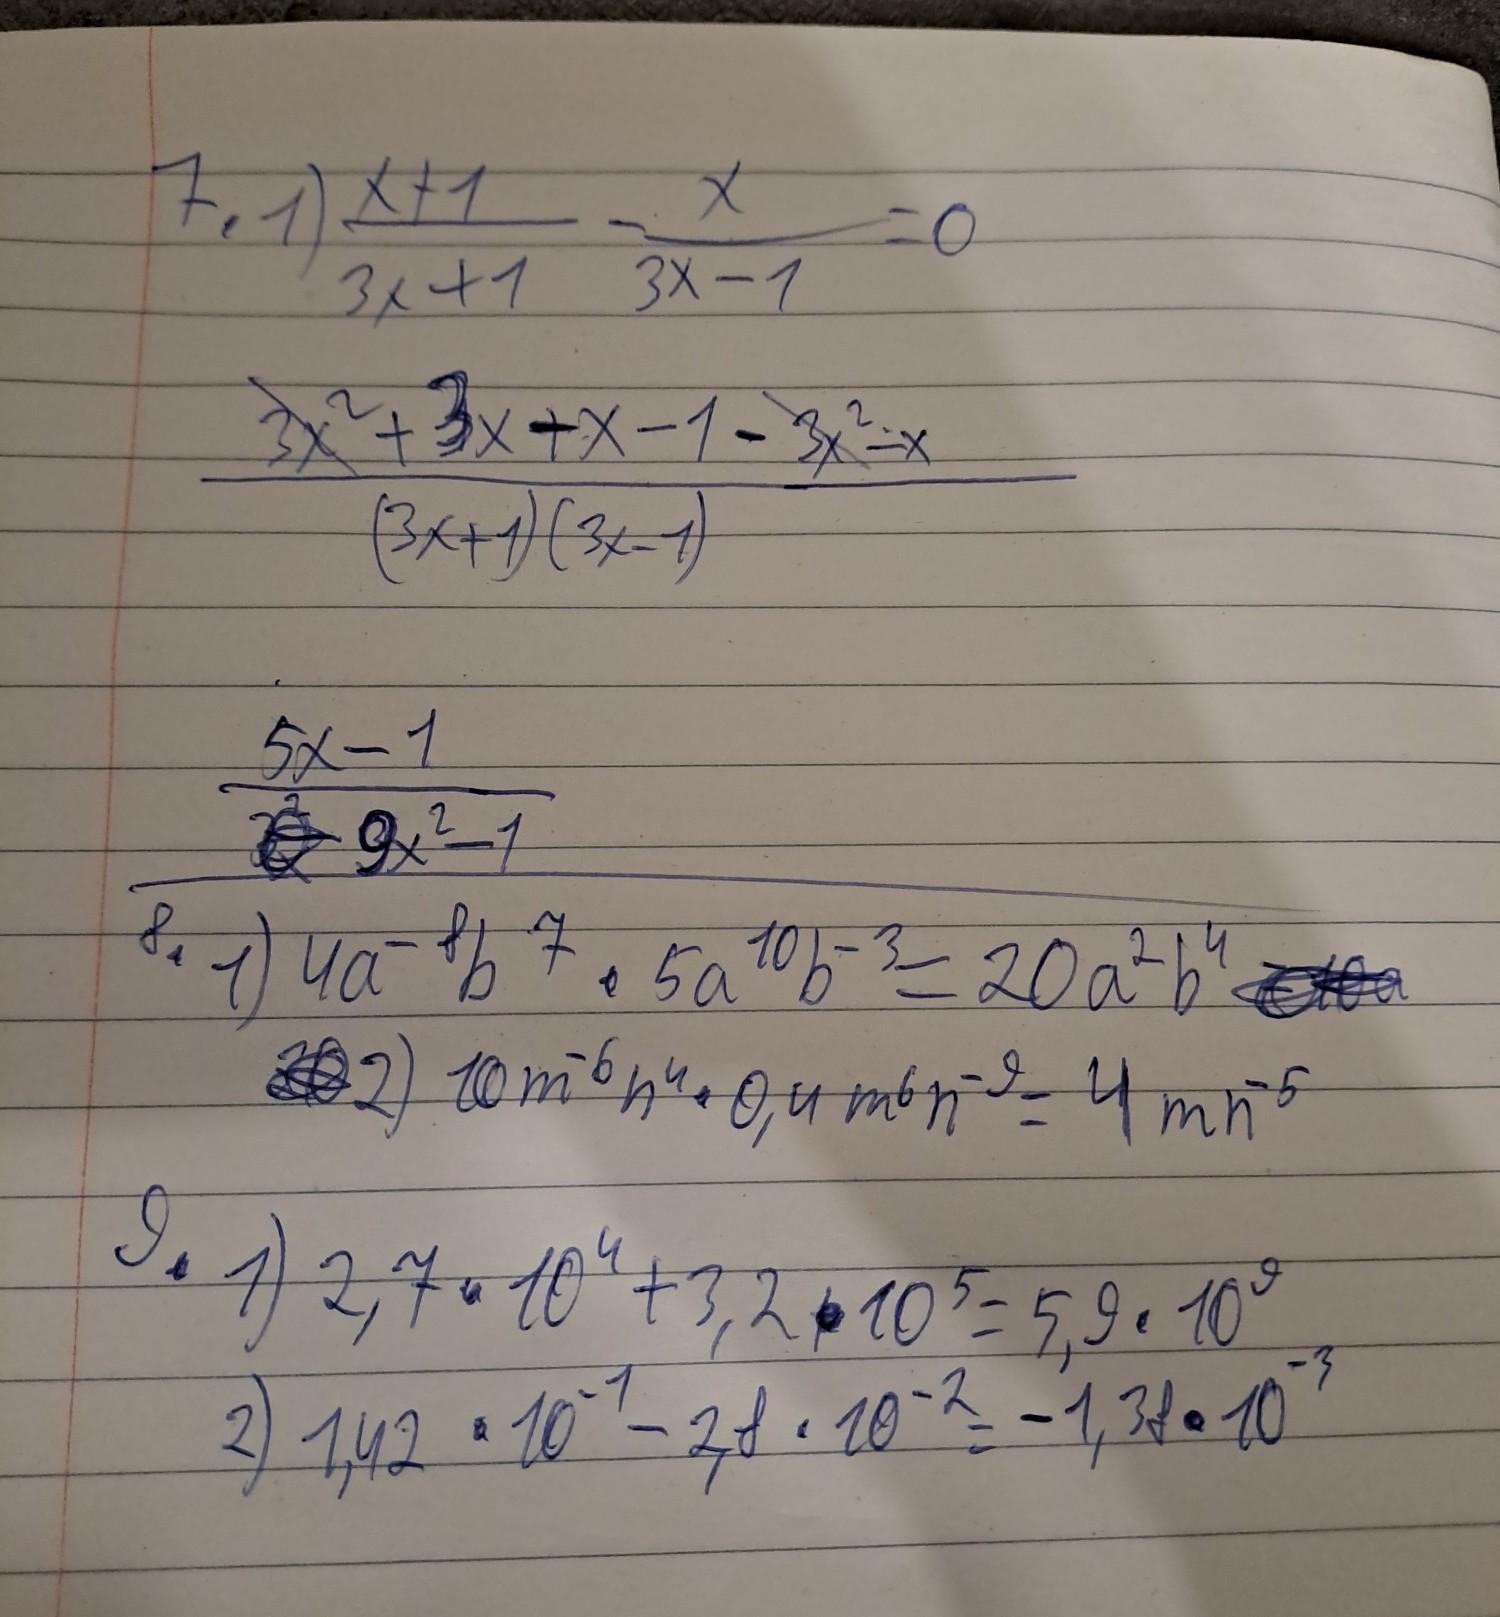 7. 1) x+1 / 3x+1 - x / 3x-1 = 0
3x² + 3x - x - 1 - 3x² - x
(3x+1)(3x-1)
5x - 1
9x² - 1
8. 1) 4a⁻⁸b⁷ · 5a¹⁰b⁻³ = 20a²b⁴
2) 10m⁻⁶n⁴ · 0,4m⁶n⁻⁹ = 4mn⁻⁵
9. 1) 2,7 · 10⁴ + 3,2 · 10⁵ = 5,9 · 10⁹
2) 1,42 · 10⁻¹ - 2,8 · 10⁻² = -1,38 · 10⁻³